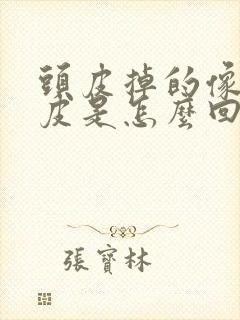 頭皮掉的像
皮是怎麼回
張寶林